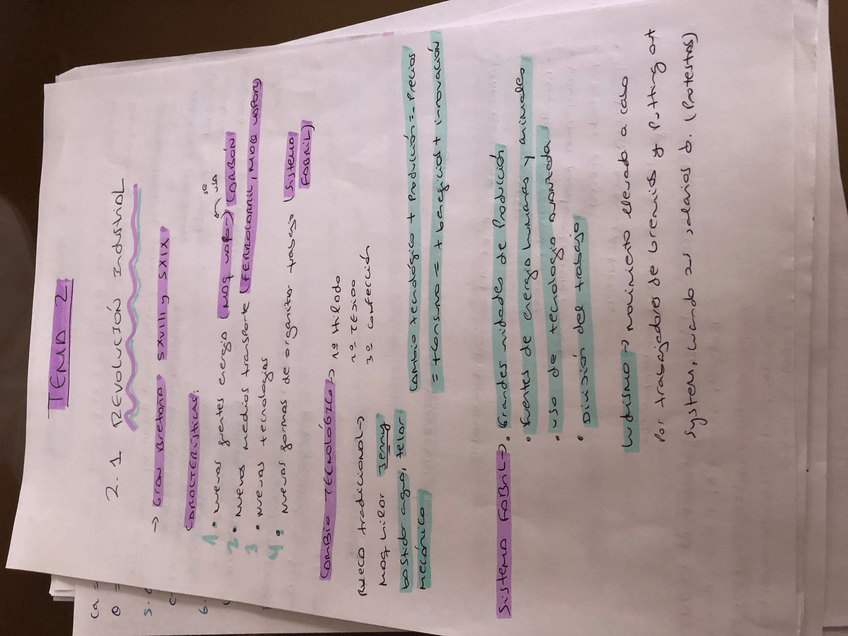 TEMA 2
2.1 REVOLUCIÓN Industrial
→ Gran Bretaña. SXVIII y SXIX
CARACTERÍSTICAS:
1 • Nuevas fuentes energia (MAQ VAPOR→ CARBÓN
se usa
2 • Nuevos medios transporte (FERROCARRIL, MAQ VAPOR)
3 • Nuevas tecnologías
4 • Nuevas formas de organizar trabajo (Sistema
FABRIL)
CAMBIO TECNOLÓGICO → 1º Hilado
2º TEJIDO
3º Confección
RUECA tradicional →
MAQ Hilar Jenny
bastidor agua, telar
mecánico
Cambio tecnológico + Producción = - Precios
= + Consumo = + beneficios + innovación
SISTEMA FABRIL → • Grandes unidades de Producción
• Fuentes de energia humanas y animales
• Uso de tecnología avanzada
• División del trabajo
Ludismo → movimiento llevado a cabo
por trabajadores de Gremios y Putting out
System, cuando sus salarios ↓. (Protestas)